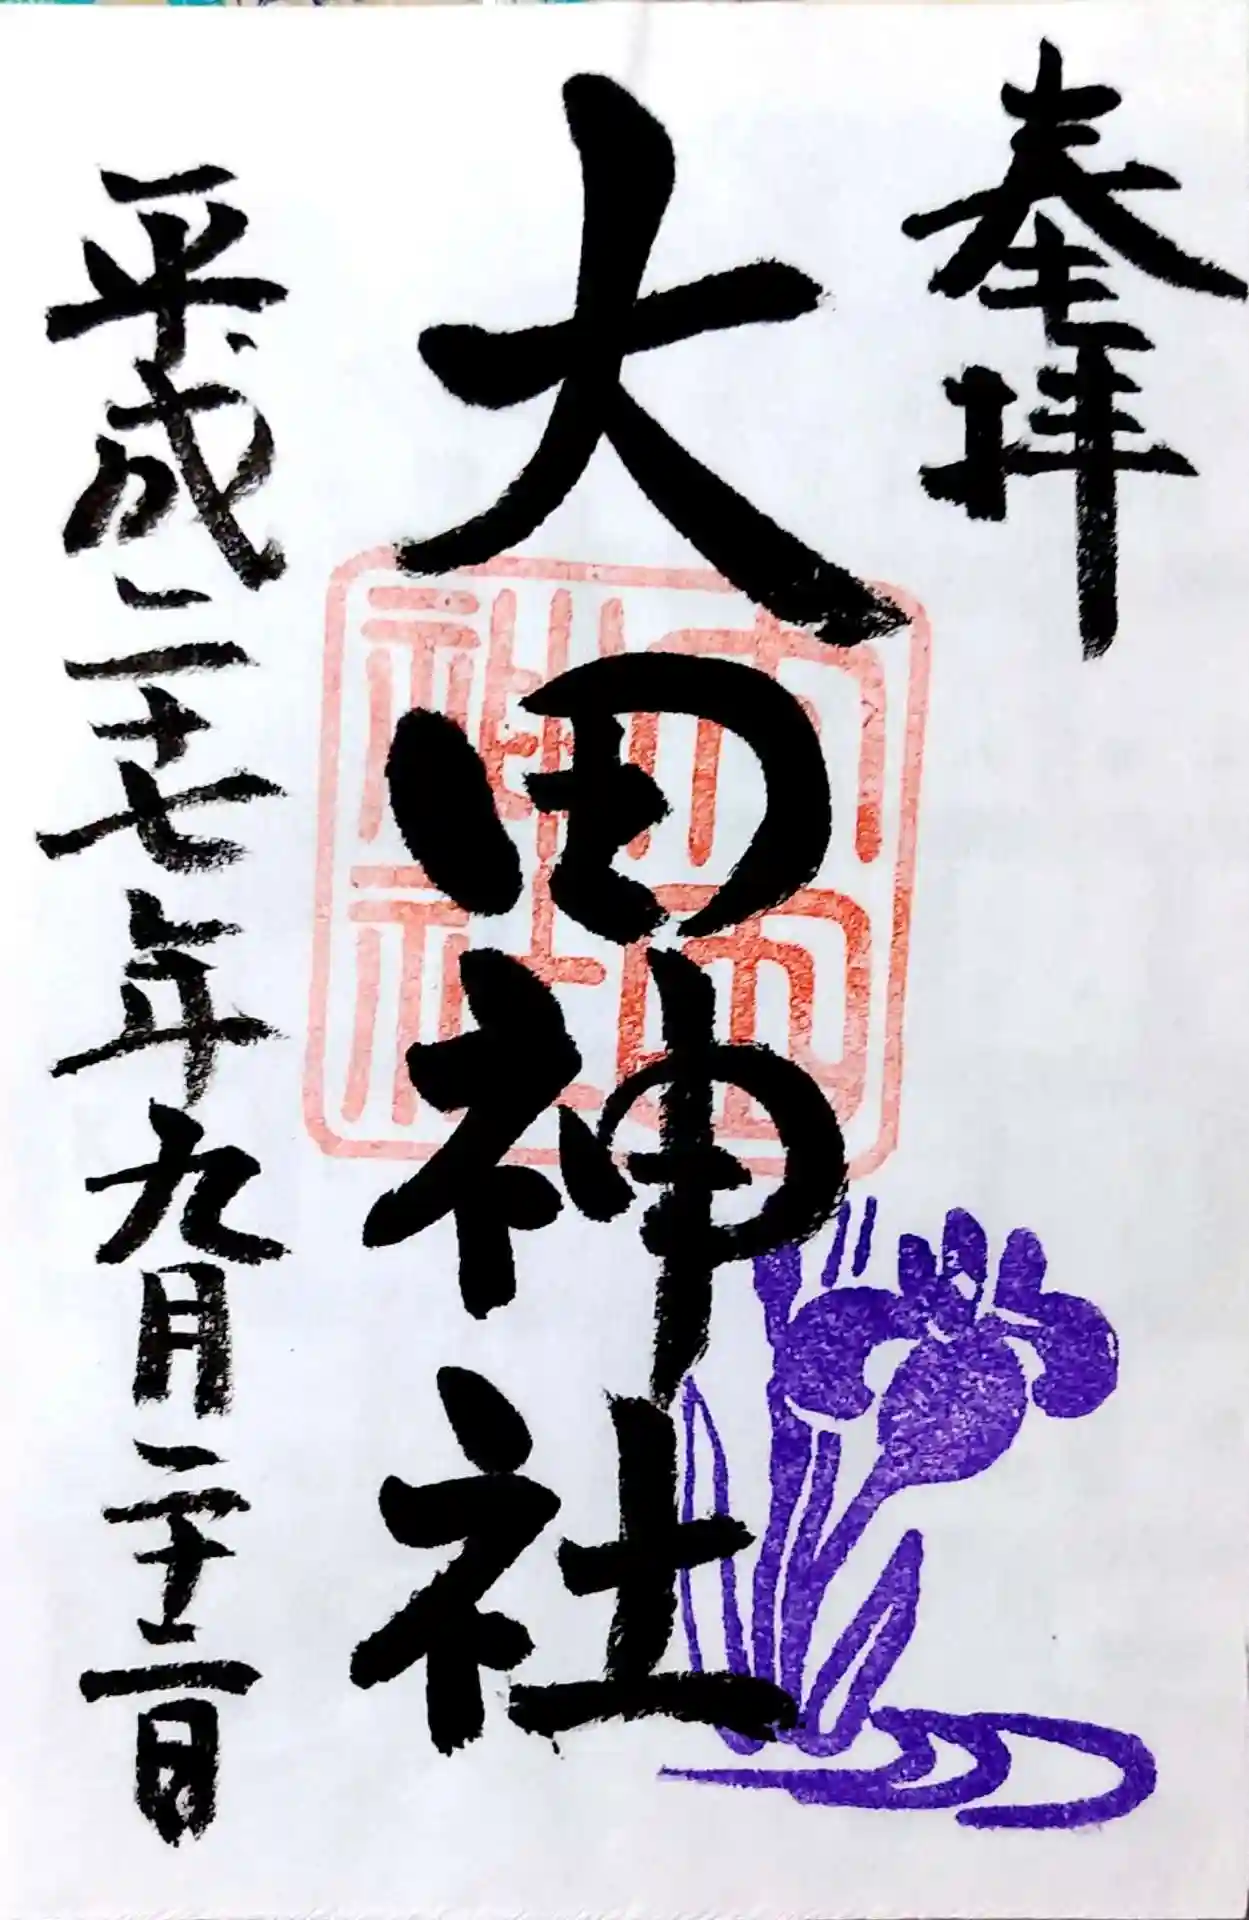 奉拝
大田神社
大田神社
平成二十七年九月二十二日